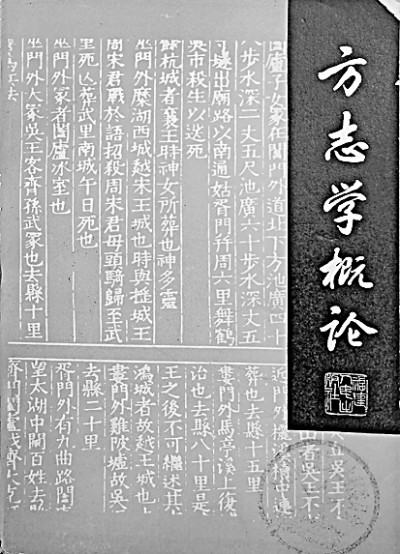 方志学概论
闔廬子女冢在閶門外道北下方池廣四十
八步水深二丈五尺池廣六十步水深丈五
寸墜出廟路以南通姑胥門幷周六里舞鶴
吳市殺生以送死
餘杭城者襄王時神女所葬也神多靈
巫門外麋湖西城越宋王城也時與搖城王
周宋君戰於語招殺周宋君毋頭騎歸至武
里死亾葬武里南城午日死也
巫門外冢者闔廬冰室也
巫門外大冢吳王客齊孫武冢也去縣十里
善為兵法
近門外
葬也去縣十五里
婁門外馬亭溪上復
治也去縣八十里是
王之後不可繼述其
鴻城者故越王城也
婁門外雞陂墟故吳
去縣二十里
胥門外有九曲路閶
望太湖中闚百姓去